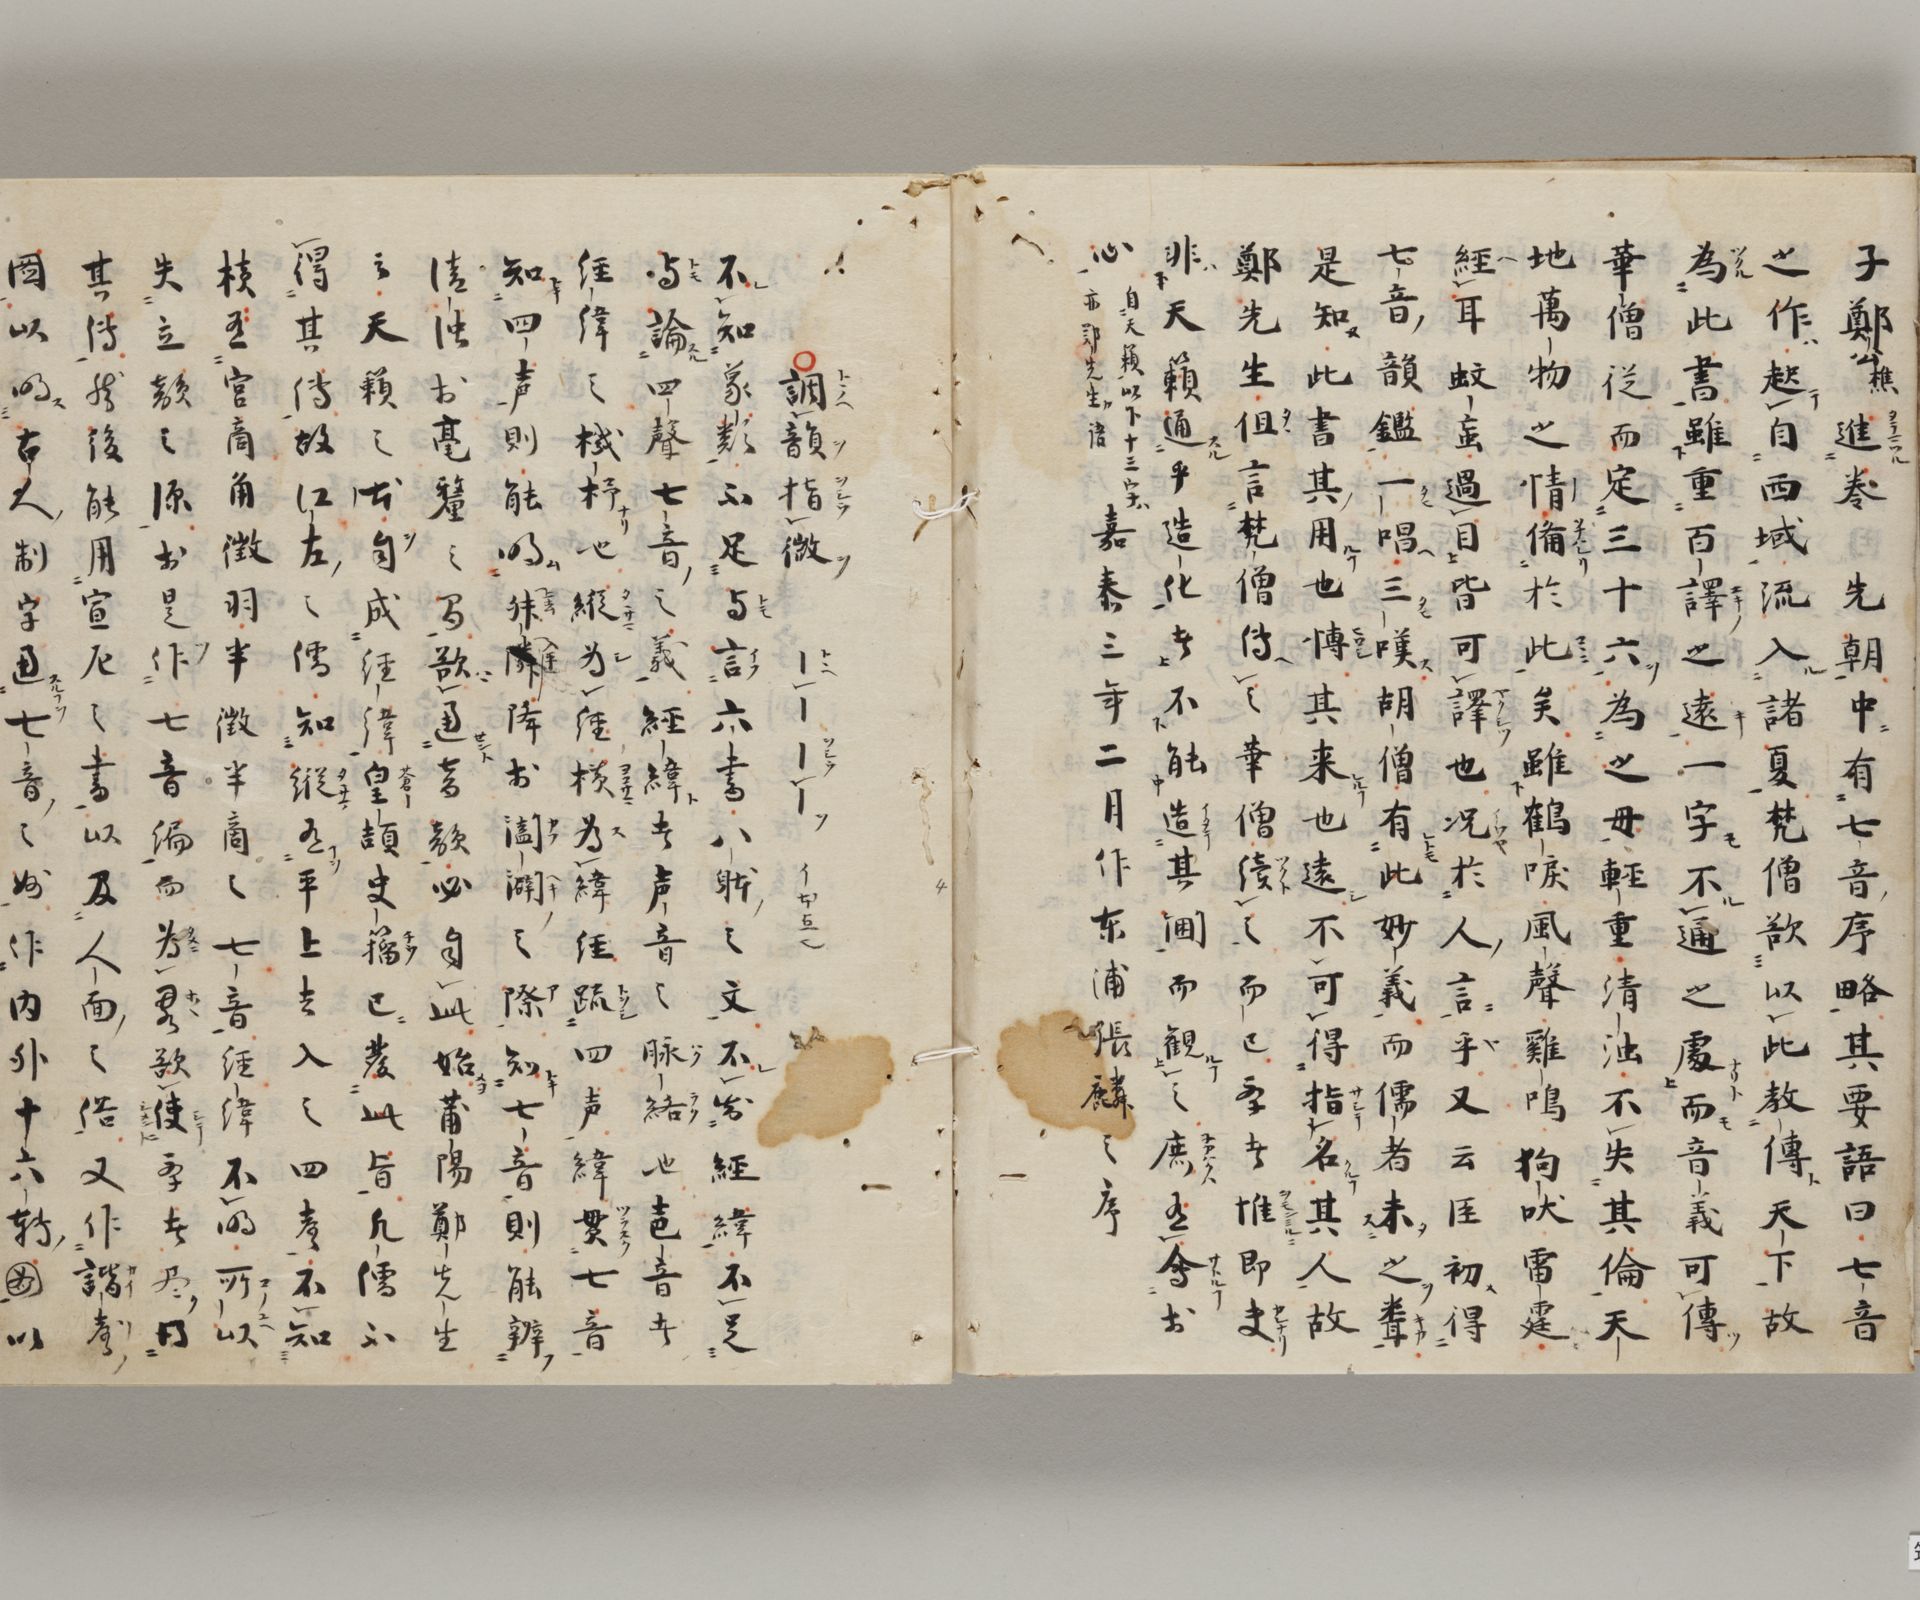 子鄭樵進卷先朝中有七音序略其要語曰七音
之作起自西域流入諸夏梵僧欲以此教傳天下故
為此書雖重百譯之遠一字不通之處而音義可傳
華僧従而定三十六為之母輕重清濁不失其倫天
地萬物之情備於此矣雖鶴唳風聲雞鳴狗吠雷霆
經耳蚊虻過目皆可譯也况於人言乎又云臣初得
七音韻鑑一唱三嘆胡僧有此妙義而儒者未之聞
是知此書其用也博其来也遠不可得指名其人故
鄭先生但言梵僧傳之華僧續之而已学者惟即史
非天籟通乎造化者不能造其閫而観之庶有會於
心 自天籟以下十三字
亦鄭先生語
嘉泰三年二月作东浦張麟之序
調韻指微
不知象類不足与言六書八躰之文不知經緯不足
与論四聲七音之義經緯者声音之脉絡也声音者
経緯之機杼也縦為経横為緯経疏四声緯貫七音
知四声則能明升降於闔闢之際知七音則能辨
清浊於毫釐之間欲通音韻必自此始莆陽鄭先生
云天籟之本自成経緯皇頡史籀已發此旨凡儒不
得其傳故江左之儒知縦有平上去入之四声不知
横有宮商角徵羽半徵半商之七音経緯不明所以
失立韻之源於是作七音編而為畧欲使学者尽得
其傳然後能用宣尼之書以及人面之俗又作諧声
圖以明古人制字通七音之妙作内外十六轉圖以